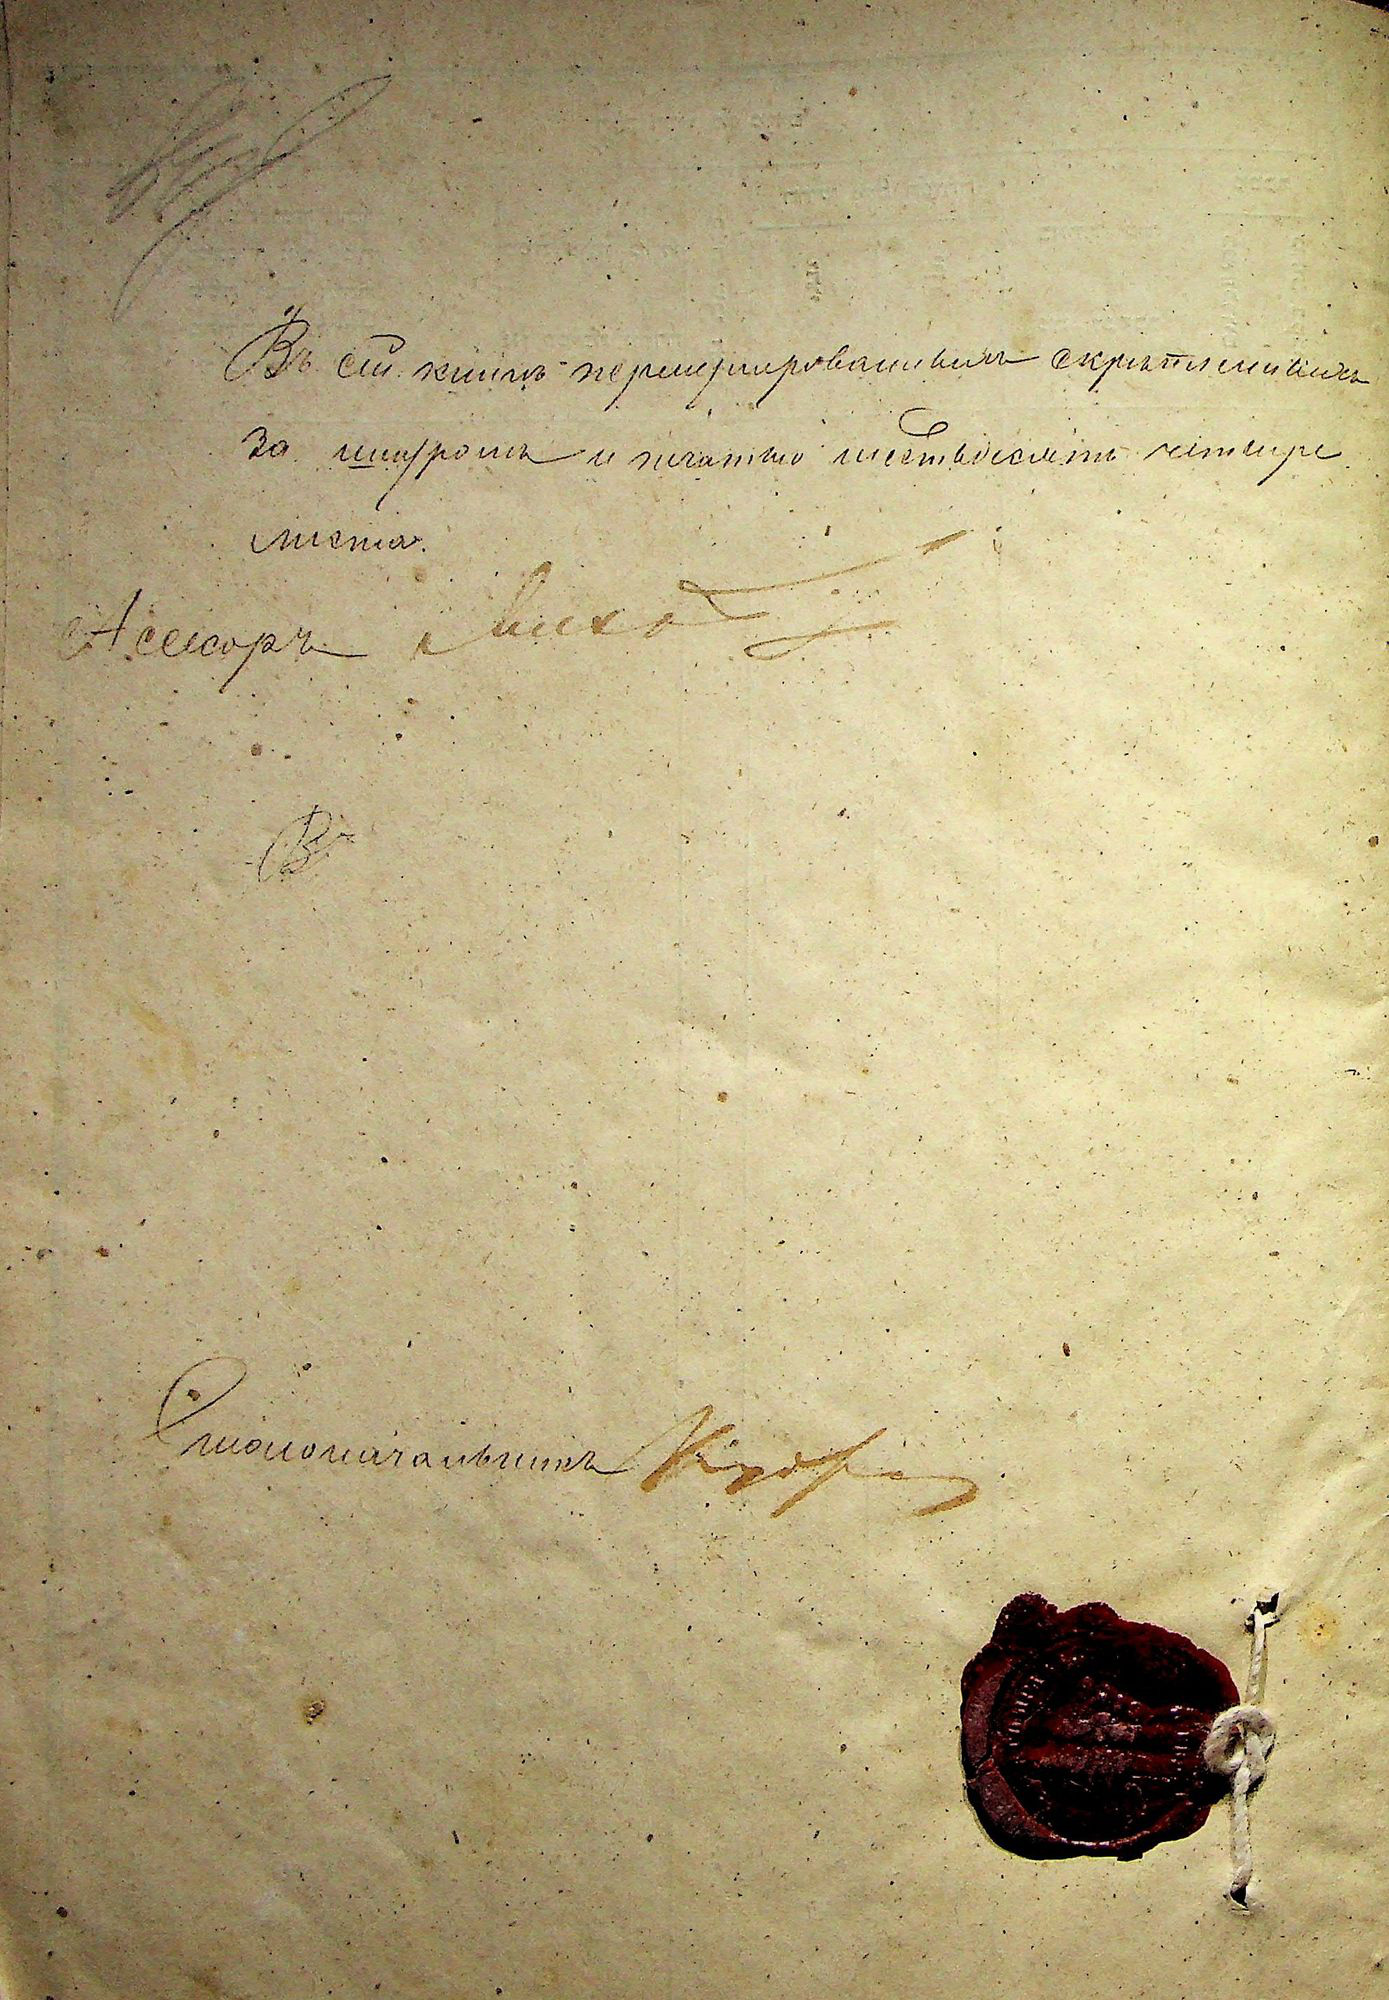 Въ сей книгѣ перенумерованныхъ скрѣпленныхъ
за шнуромъ и печатью шестьдесятъ четыре
листа.
Асесоръ
Въ
Столоначальникъ